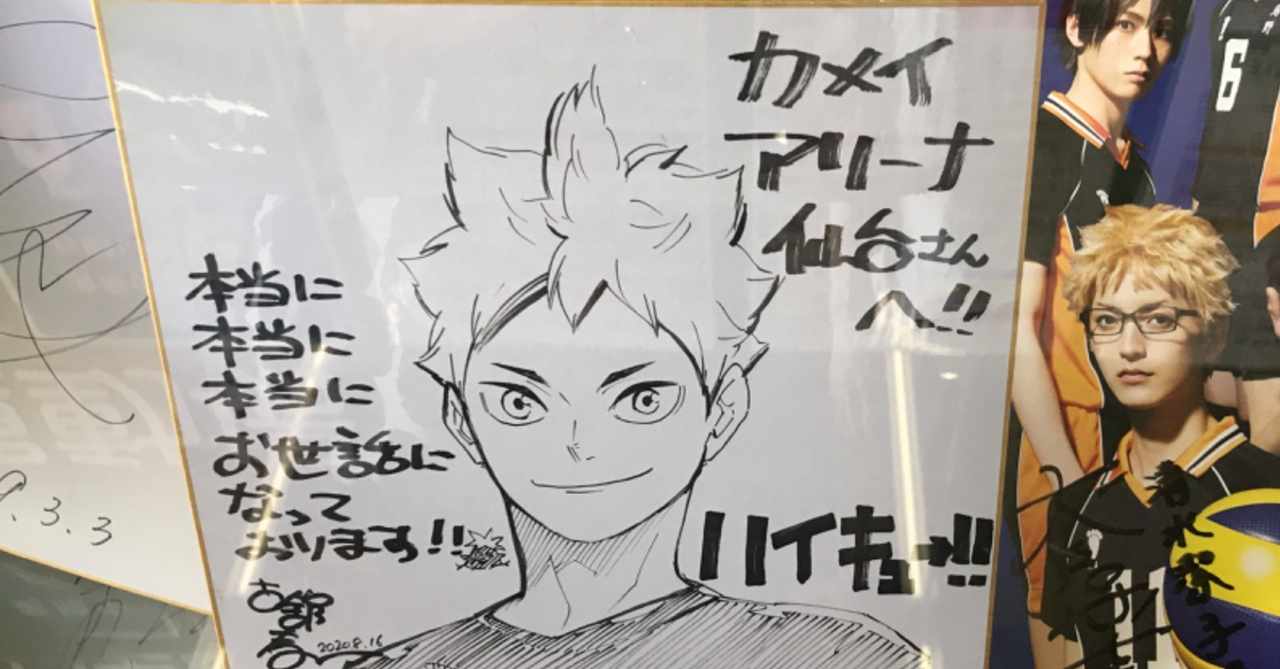 カメイ
アリーナ
仙台さん
へ!!
本当に
本当に
本当に
お世話に
なって
おります!!
古舘春一
2020 8.16
ハイキュー!!
3.3
6